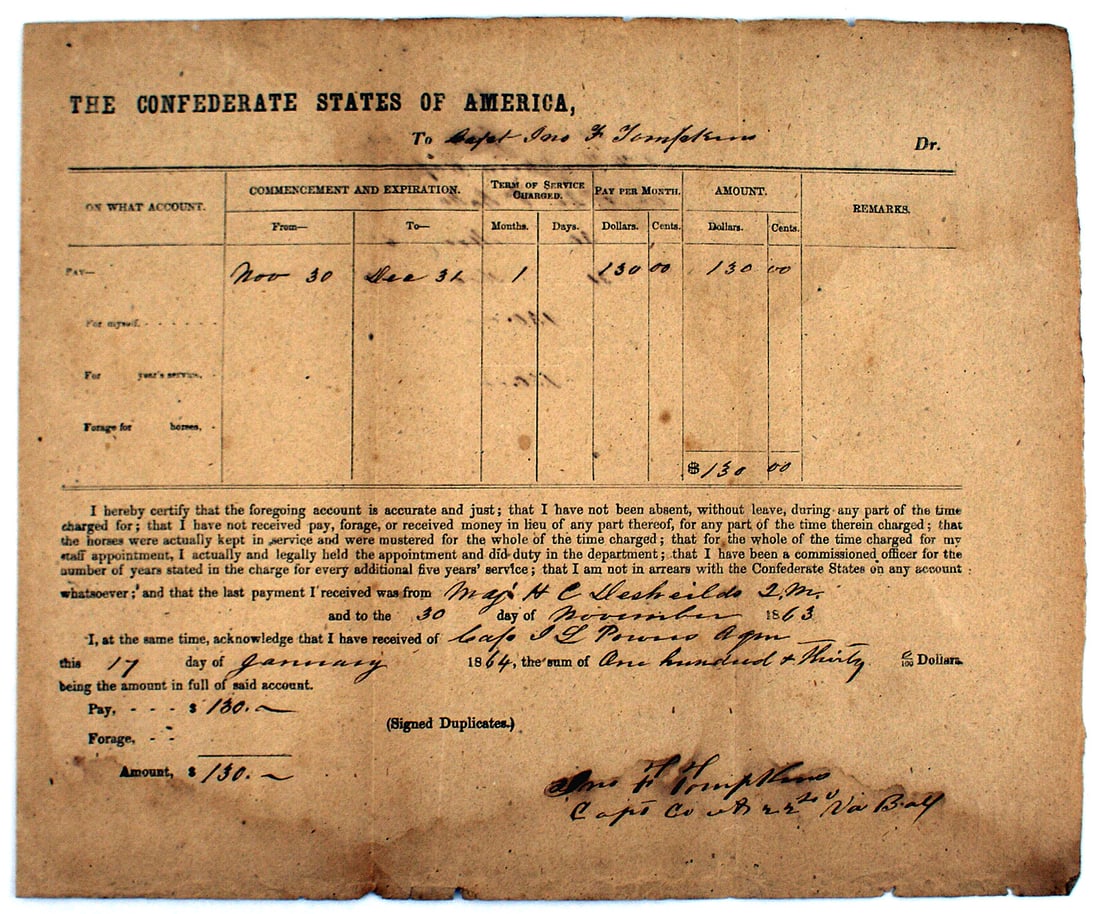 THE CONFEDERATE STATES OF AMERICA,
To Capt Jno F Tompkins Dr.
ON WHAT ACCOUNT. COMMENCEMENT AND EXPIRATION. TERM OF SERVICE CHARGED. PAY PER MONTH. AMOUNT. REMARKS.
From— To— Months. Days. Dollars. Cents. Dollars. Cents.
PAY— Nov 30 Dec 31 1 130 00 130 00
For myself.
For year's service,
Forage for horses,
$130 00
I hereby certify that the foregoing account is accurate and just; that I have not been absent, without leave, during any part of the time
charged for; that I have not received pay, forage, or received money in lieu of any part thereof, for any part of the time therein charged; that
the horses were actually kept in service and were mustered for the whole of the time charged; that for the whole of the time charged for my
staff appointment, I actually and legally held the appointment and did duty in the department; that I have been a commissioned officer for the
number of years stated in the charge for every additional five years' service; that I am not in arrears with the Confederate States on any account
whatsoever; and that the last payment I received was from Maj H C Desheilds Q.M.
and to the 30 day of November 1863
I, at the same time, acknowledge that I have received of J L Powers Aqm
this 17 day of January 1864, the sum of One hundred & thirty /100 Dollars.
being the amount in full of said account.
Pay, - - - $ 130.
Forage, - -
(Signed Duplicates.)
Amount, $ 130.
Jno F Tompkins
Capt Co A 22nd Va Bat